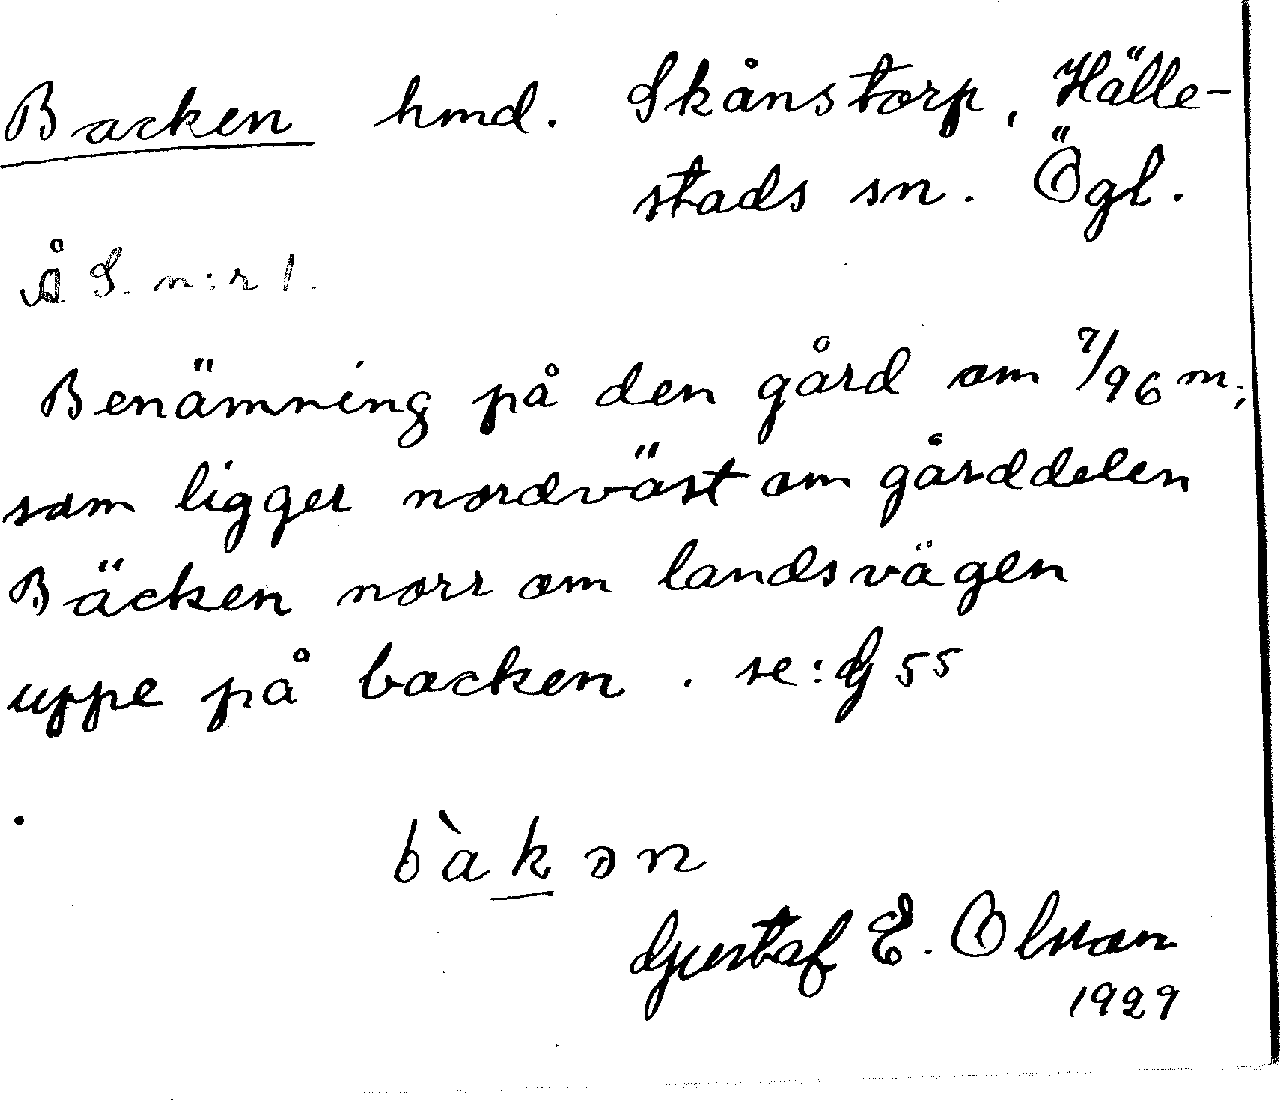 Backen hmd. Skånstorp, Hälle-
stads sn. Ögl.
Å S. n:r 1.
Benämning på den gård om 7/96 m;
som ligger nordväst om gårddelen
Bäcken norr om landsvägen
uppe på backen. se: G 55
bàkən
Gustaf E. Olsson
1929